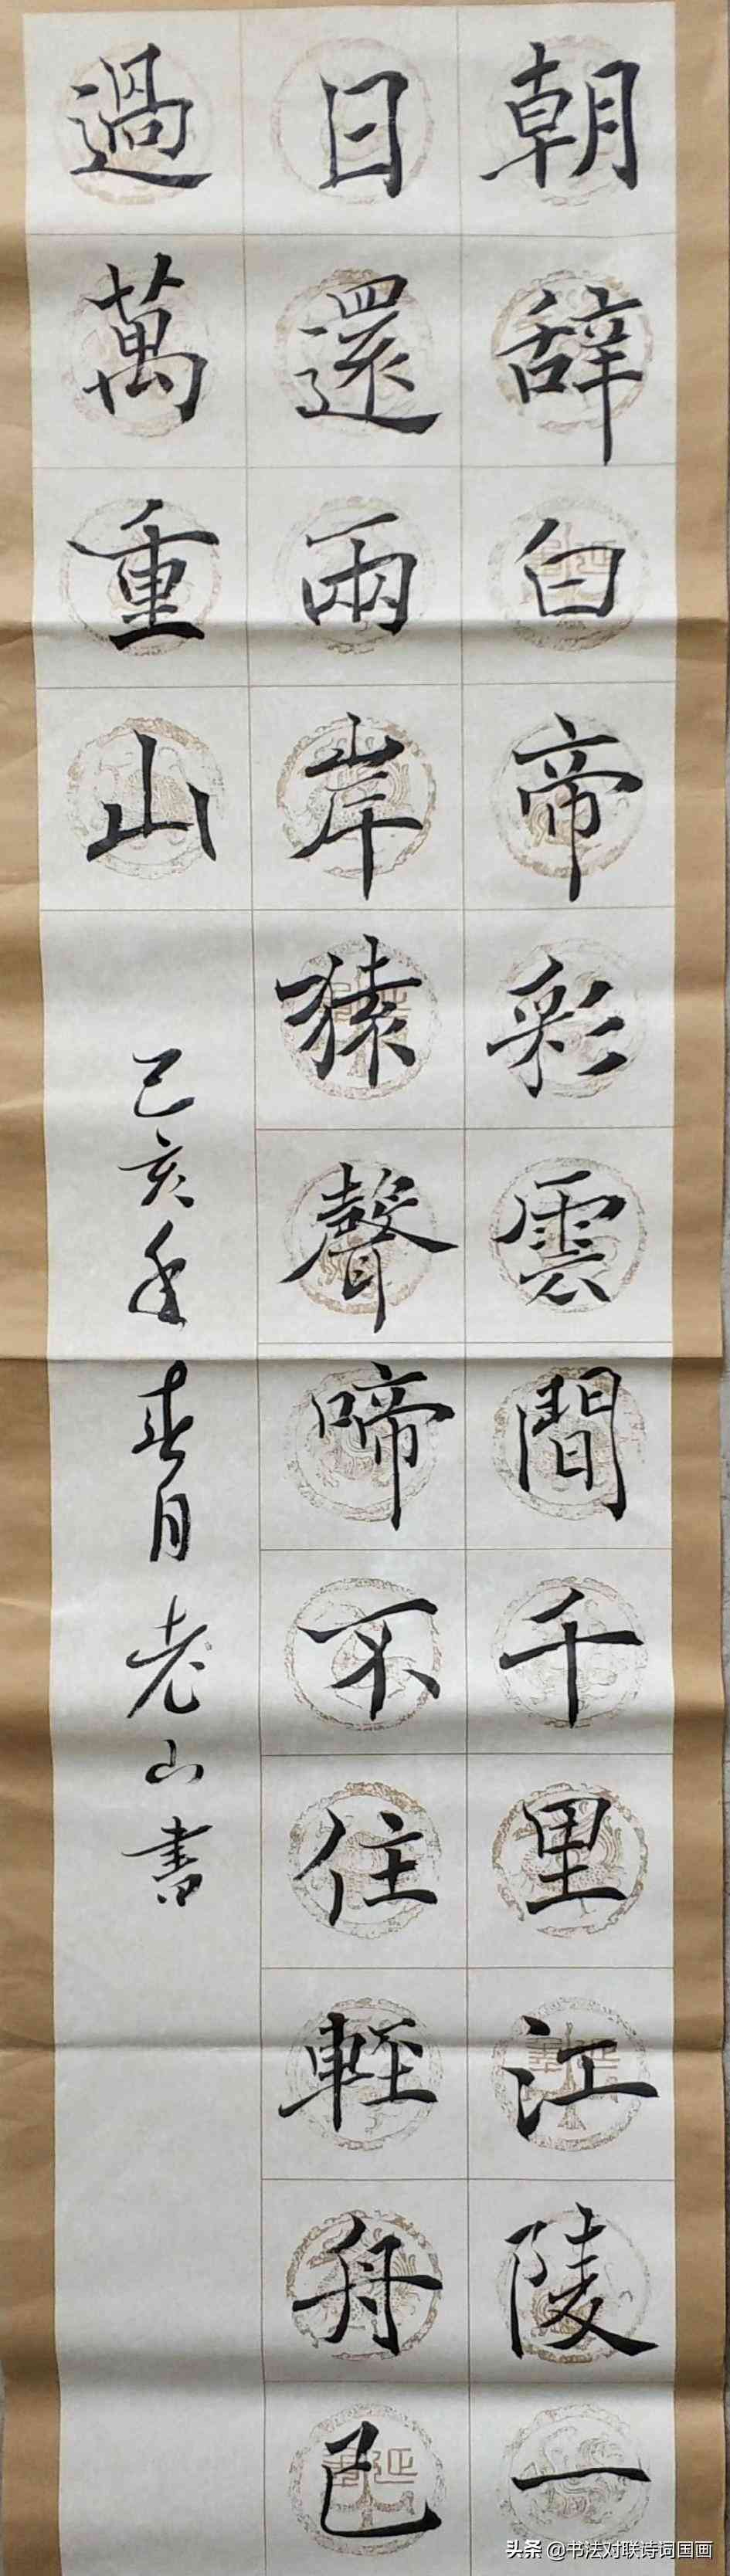 朝辞白帝彩雲間千里江陵一
日還兩岸猿聲啼不住軽舟已
過萬重山
己亥年春月老山書
头条 @书法对联诗词国画